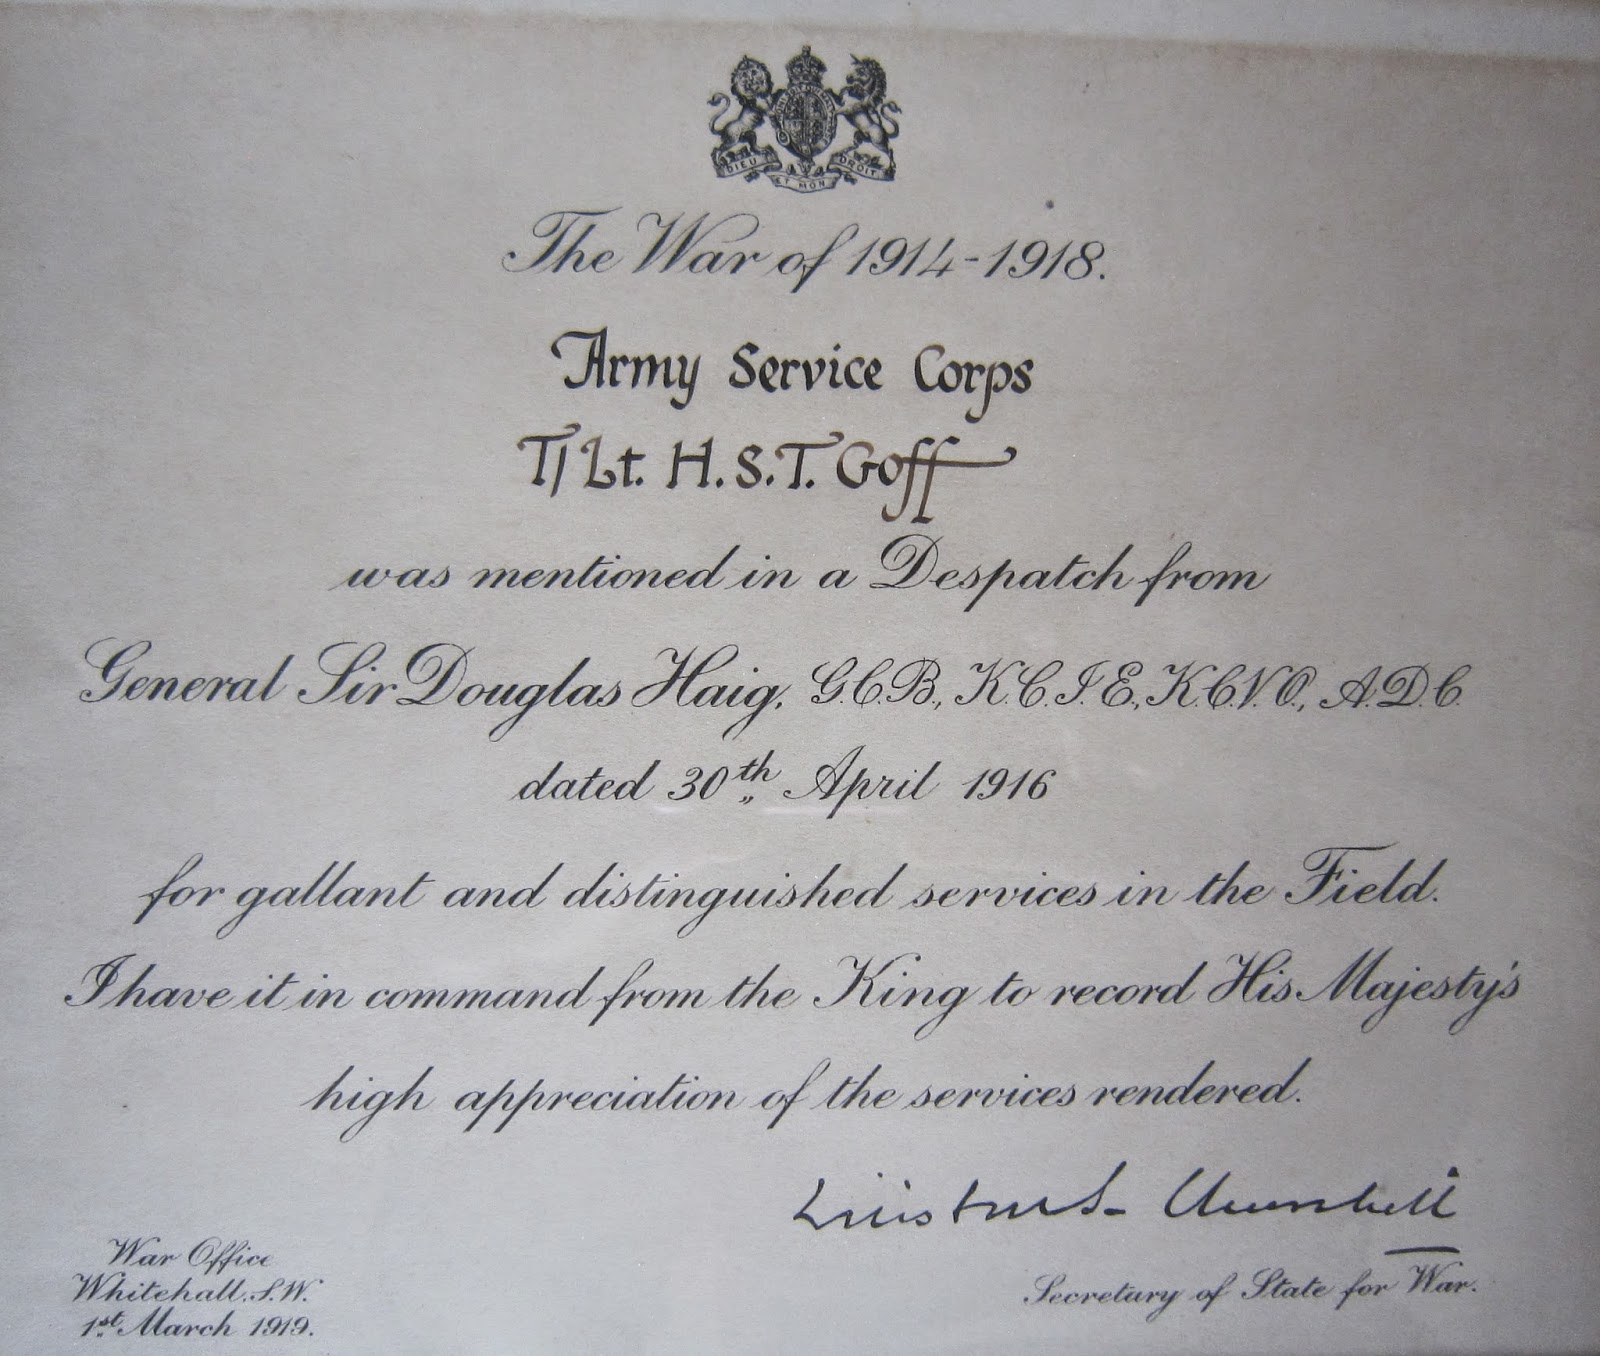 DIEU ET MON DROIT
The War of 1914-1918.
Army Service Corps
T/Lt. H.S.T. Goff
was mentioned in a Despatch from
General Sir Douglas Haig, G.C.B., K.C.I.E., K.C.V.O., A.D.C.
dated 30th April 1916
for gallant and distinguished services in the Field.
I have it in command from the King to record His Majesty's
high appreciation of the services rendered.
Winston S. Churchill
War Office
Whitehall. S.W.
1st March 1919.
Secretary of State for War.